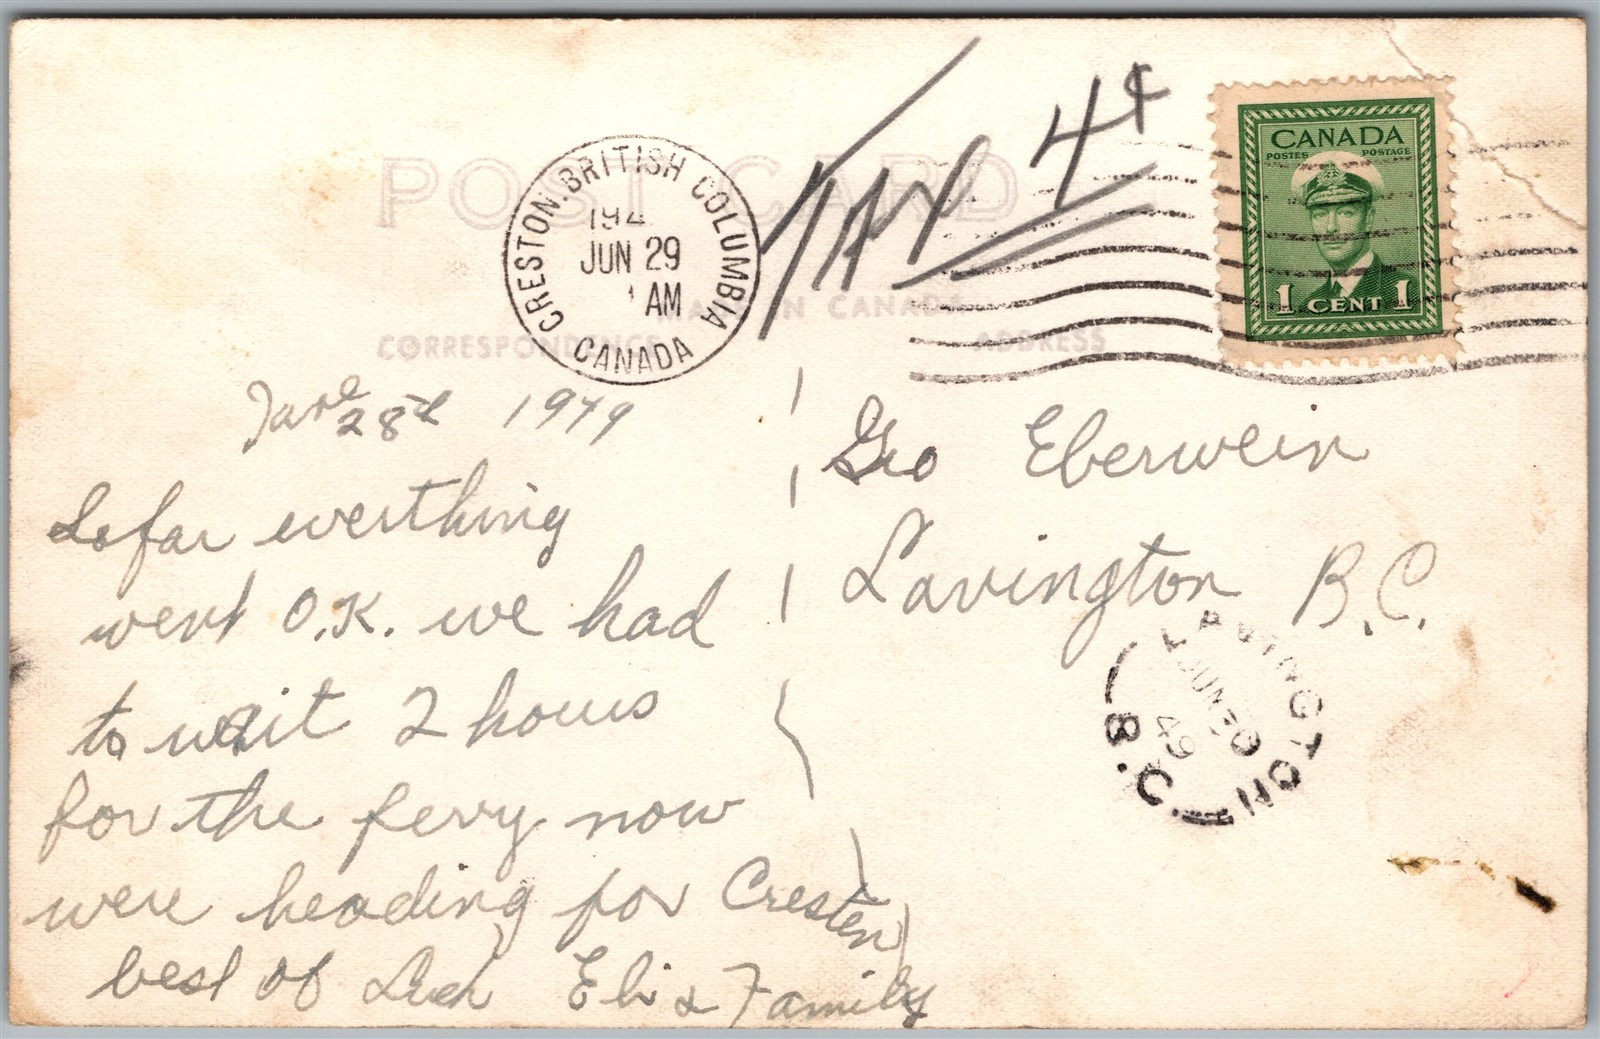 POST CARD
CRESTON. BRITISH COLUMBIA
194
JUN 29
AM
CANADA
TAX 4¢
CANADA
POSTES POSTAGE
1 CENT 1
MADE IN CANADA
CORRESPONDENCE
ADDRESS
June 28th 1949
So far everthing
went O.K. we had
to wait 2 hours
for the ferry now
were heading for Cresten
best of Luck Eli & Family
Geo Eberwein
Lavington B.C.
LAVINGTON
JUN 30
49
B.C.